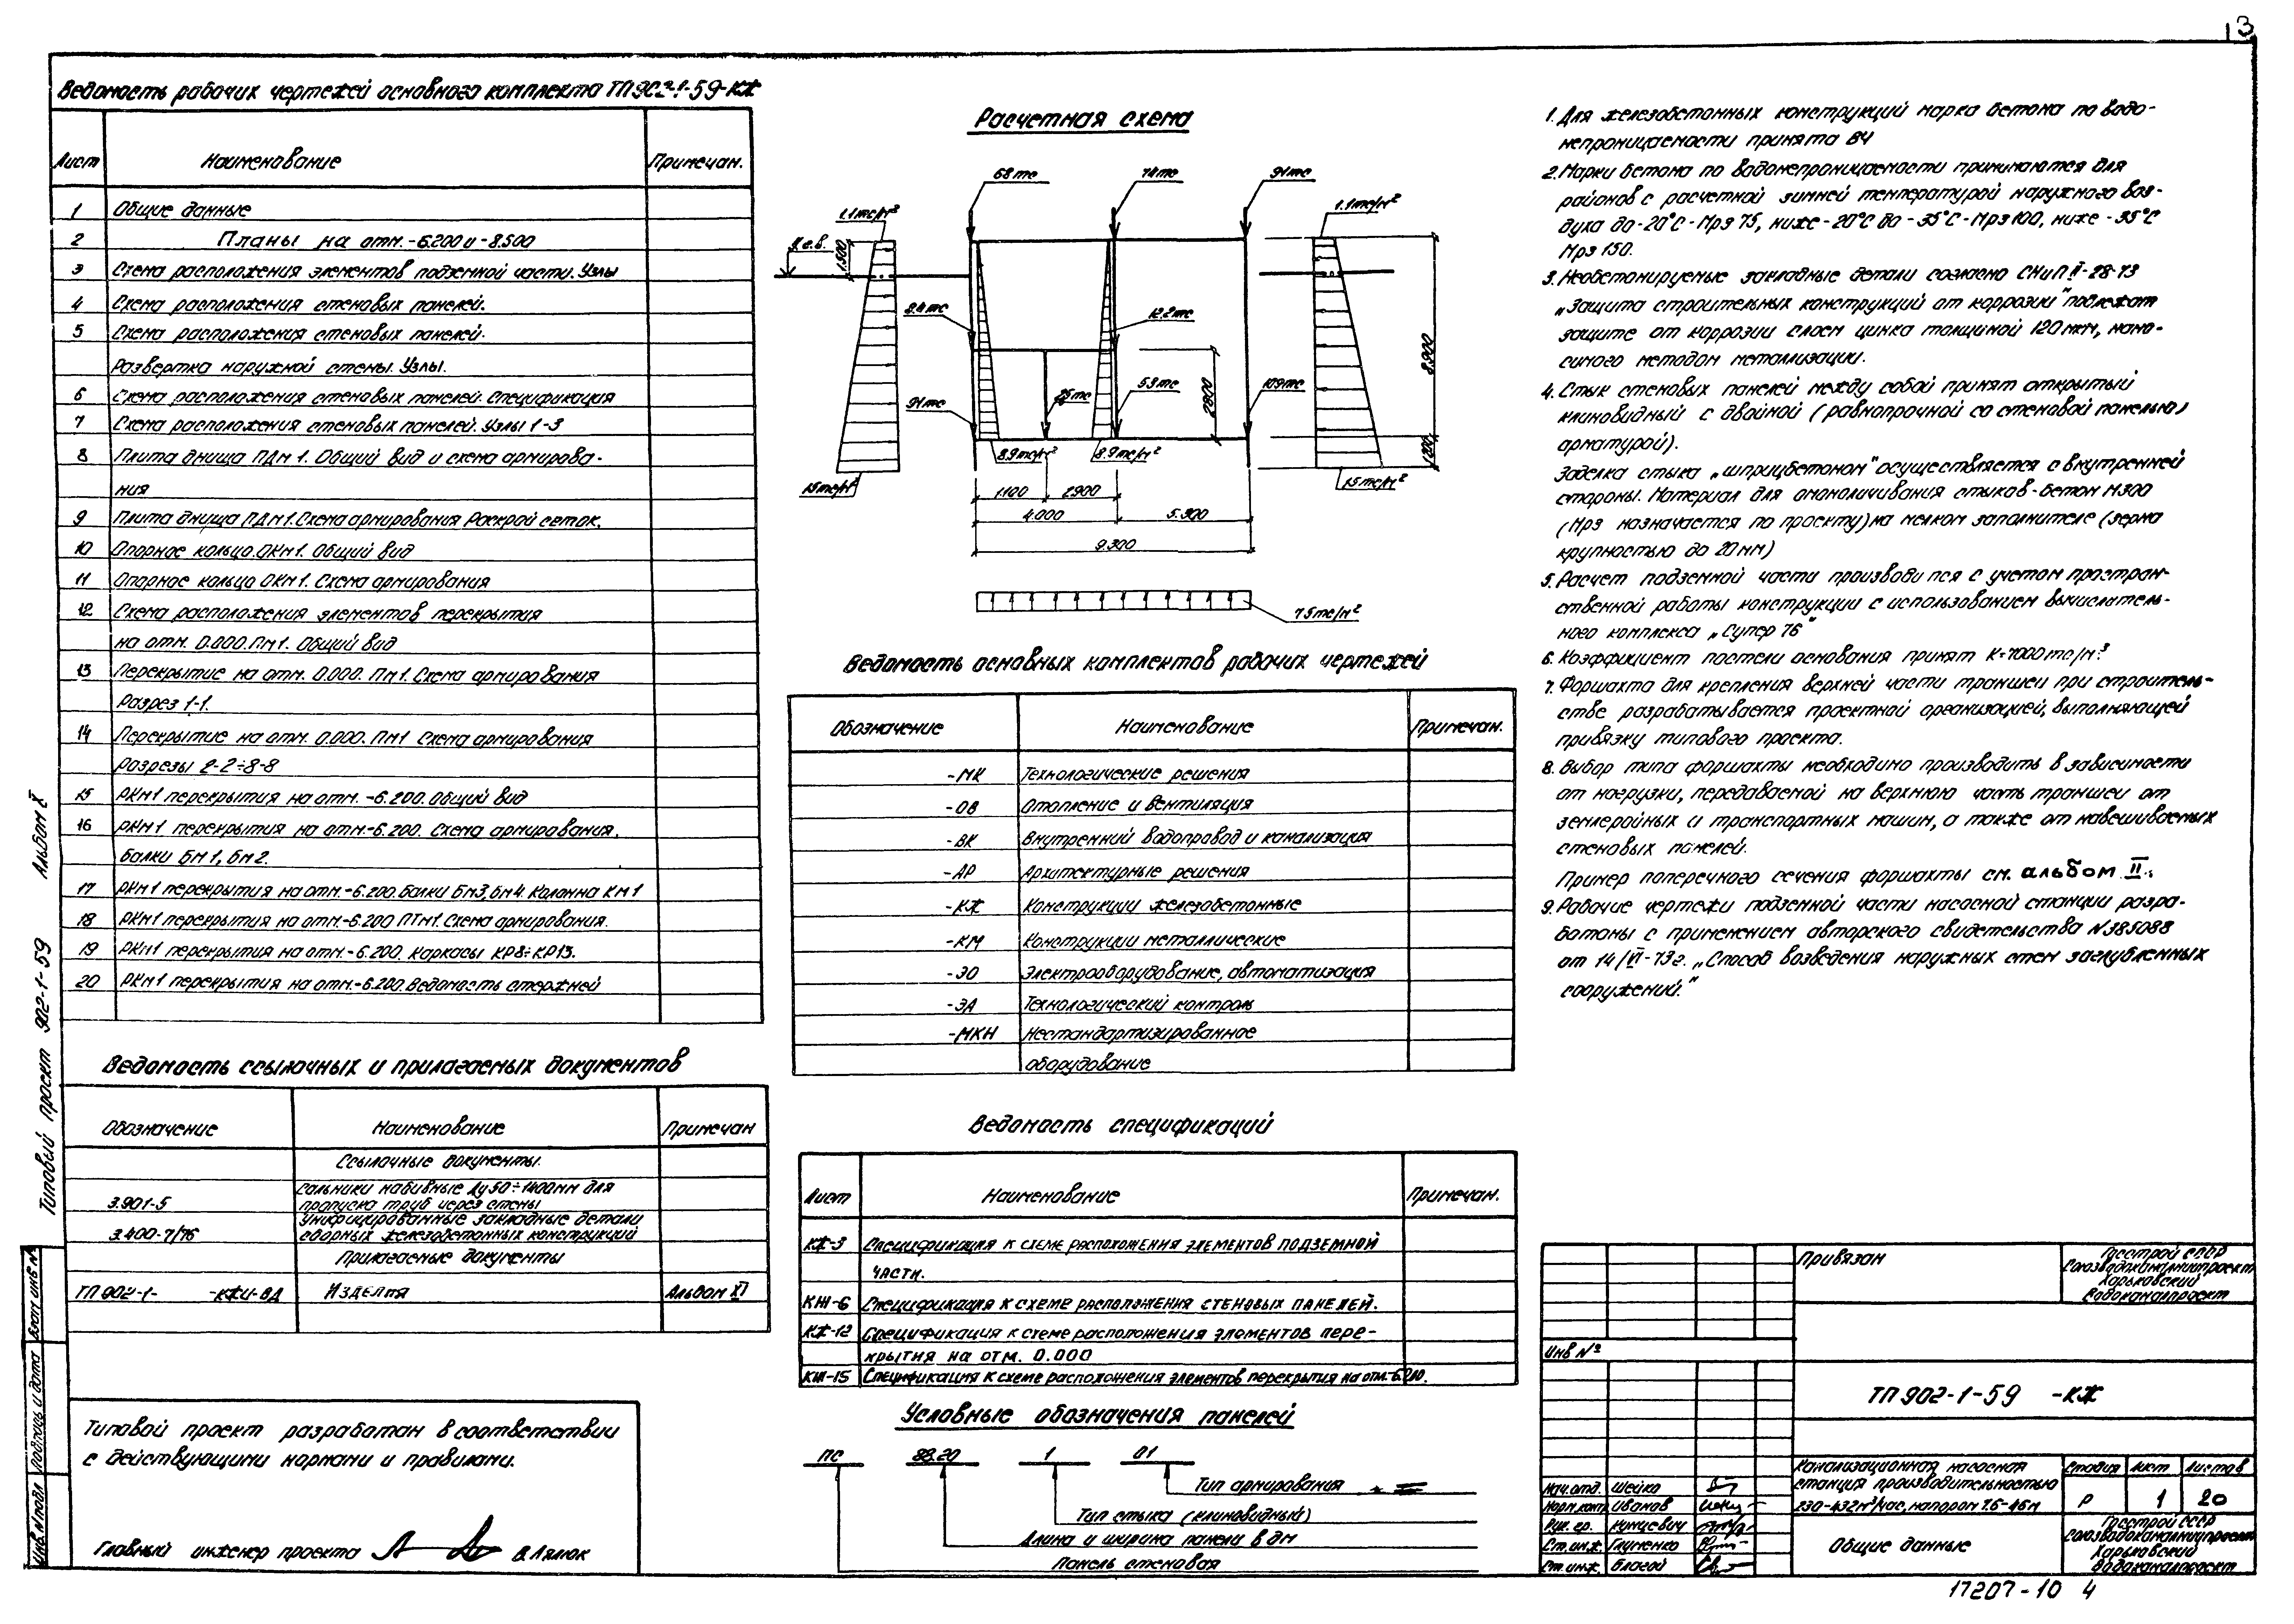 13
Ведомость рабочих чертежей основного комплекта ТП902-1-59-КЖ
Лист Наименование Примечан.
1 Общие данные
2 Планы на отм. -6.200 и -8.500
3 Схема расположения элементов подземной части. Узлы
4 Схема расположения стеновых панелей.
5 Схема расположения стеновых панелей.
Развертка наружной стены. Узлы.
6 Схема расположения стеновых панелей. Спецификация
7 Схема расположения стеновых панелей. Узлы 1-3
8 Плита днища ПДм 1. Общий вид и схема армирова-
ния
9 Плита днища ПДм1. Схема армирования Раскрой сеток.
10 Опорное кольцо ОКм 1. Общий вид
11 Опорное кольцо ОКм 1. Схема армирования
12 Схема расположения элементов перекрытия
на отм. 0.000. Пм 1. Общий вид
13 Перекрытие на отм. 0.000. Пм 1. Схема армирования
Разрез 1-1.
14 Перекрытие на отм. 0.000. Пм1 Схема армирования
Разрезы 2-2÷8-8
15 РКм1 перекрытия на отм. -6.200. Общий вид
16 РКм1 перекрытия на отм.-6.200. Схема армирования.
Балки Бм 1, Бм 2.
17 РКм1 перекрытия на отм.-6.200. Балки Бм3, Бм4. Колонна Км 1
18 РКм1 перекрытия на отм.-6.200 ПТм1. Схема армирования.
19 РКм1 перекрытия на отм.-6.200. Каркасы КР8÷КР13.
20 РКм1 перекрытия на отм.-6.200. Ведомость стержней
Ведомость ссылочных и прилагаемых документов
Обозначение Наименование Примечан
Ссылочные документы.
3.901-5 Сальники набивные Ду50÷1400мм для
пропуска труб через стены
3.400-7/76 Унифицированные закладные детали
сборных железобетонных конструкций
Прилагаемые документы
ТП 902-1- -КЖИ-ВД Изделия Альбом XI
Типовой проект разработан в соответствии
с действующими нормами и правилами.
Главный инженер проекта В. Лялюк
Типовой проект 902-1-59 Альбом X
Взам инв №
Подпись и дата
Инв. № подл
Расчетная схема
68тс 74тс 91тс
1.1тс/м² 1.1тс/м²
1.500
8.4тс 12.2тс
8.900
2800
91тс 25тс 53тс 109тс
8.9тс/м² 8.9тс/м²
1.200
15тс/м² 15тс/м²
1.100 2.900
4.000 5.300
9.300
7.5тс/м²
Ведомость основных комплектов рабочих чертежей
Обозначение Наименование Примечан.
-МК Технологические решения
-ОВ Отопление и вентиляция
-ВК Внутренний водопровод и канализация
-АР Архитектурные решения
-КЖ Конструкции железобетонные
-КМ Конструкции металлические
-ЭО Электрооборудование, автоматизация
-ЭА Технологический контроль
-МКН Нестандартизированное
оборудование
Ведомость спецификаций
Лист Наименование Примечан.
КЖ-3 Спецификация к схеме расположения элементов подземной
части.
КЖ-6 Спецификация к схеме расположения стеновых панелей.
КЖ-12 Спецификация к схеме расположения элементов пере-
крытия на отм. 0.000
КЖ-15 Спецификация к схеме расположения элементов перекрытия на отм.-6.200.
Условные обозначения панелей
ПС 88.20 1 01
Тип армирования
Тип стыка (клиновидный)
Длина и ширина панели в дм
Панель стеновая
1. Для железобетонных конструкций марка бетона по водо-
непроницаемости принята В4
2. Марки бетона по водонепроницаемости принимаются для
районов с расчетной зимней температурой наружного воз-
духа до -20°С - Мрз 75, ниже -20°С до -35°С - Мрз 100, ниже -35°С
Мрз 150.
3. Необетонируемые закладные детали согласно СНиП II-28-73
„Защита строительных конструкций от коррозии" подлежат
защите от коррозии слоем цинка толщиной 120 мкм, нано-
симого методом металлизации.
4. Стык стеновых панелей между собой принят открытый
клиновидный с двойной (равнопрочной со стеновой панелью)
арматурой).
Заделка стыка „шприцбетоном" осуществляется с внутренней
стороны. Материал для омоноличивания стыков-бетон М300
(Мрз назначается по проекту) на мелком заполнителе (зерна
крупностью до 20 мм)
5. Расчет подземной части производился с учетом простран-
ственной работы конструкции с использованием вычислитель-
ного комплекса „Супер 76"
6. Коэффициент постели основания принят К=1000 тс/м³
7. Форшахта для крепления верхней части траншеи при строитель-
стве разрабатывается проектной организацией, выполняющей
привязку типового проекта.
8. Выбор типа форшахты необходимо производить в зависимости
от нагрузки, передаваемой на верхнюю часть траншеи от
землеройных и транспортных машин, а также от навешиваемых
стеновых панелей.
Пример поперечного сечения форшахты см. альбом II.
9. Рабочие чертежи подземной части насосной станции разра-
ботаны с применением авторского свидетельства №385088
от 14/VI-73г. „Способ возведения наружных стен заглубленных
сооружений."
Привязан
Госстрой СССР
Союзводоканалниипроект
Харьковский
Водоканалпроект
Инв №
ТП 902-1-59 -КЖ
Канализационная насосная
станция производительностью
230-432м³/час, напором 7.6-46м
Стадия Лист Листов
Р 1 20
Нач. отд. Шейко
Норм.конт. Иванов
Рук. гр. Кунцевич
Ст. инж. Глуменко
Ст. инж. Благой
Общие данные
Госстрой СССР
Союзводоканалниипроект
Харьковский
Водоканалпроект
17207-10 4